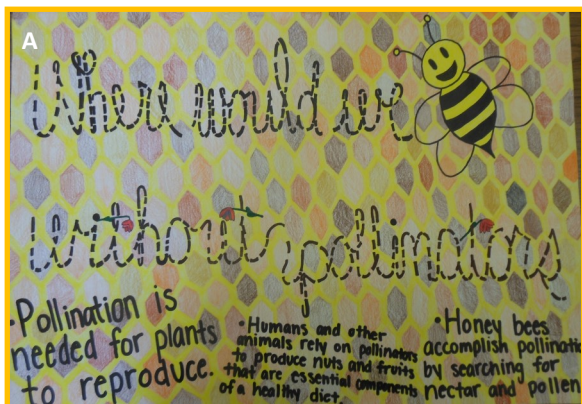 A
Where would we
without pollinators
•Pollination is
needed for plants
to reproduce.
•Humans and other
animals rely on pollinators
to produce nuts and fruits
that are essential components
of a healthy diet.
•Honey bees
accomplish pollinati
by searching for
nectar and pollen